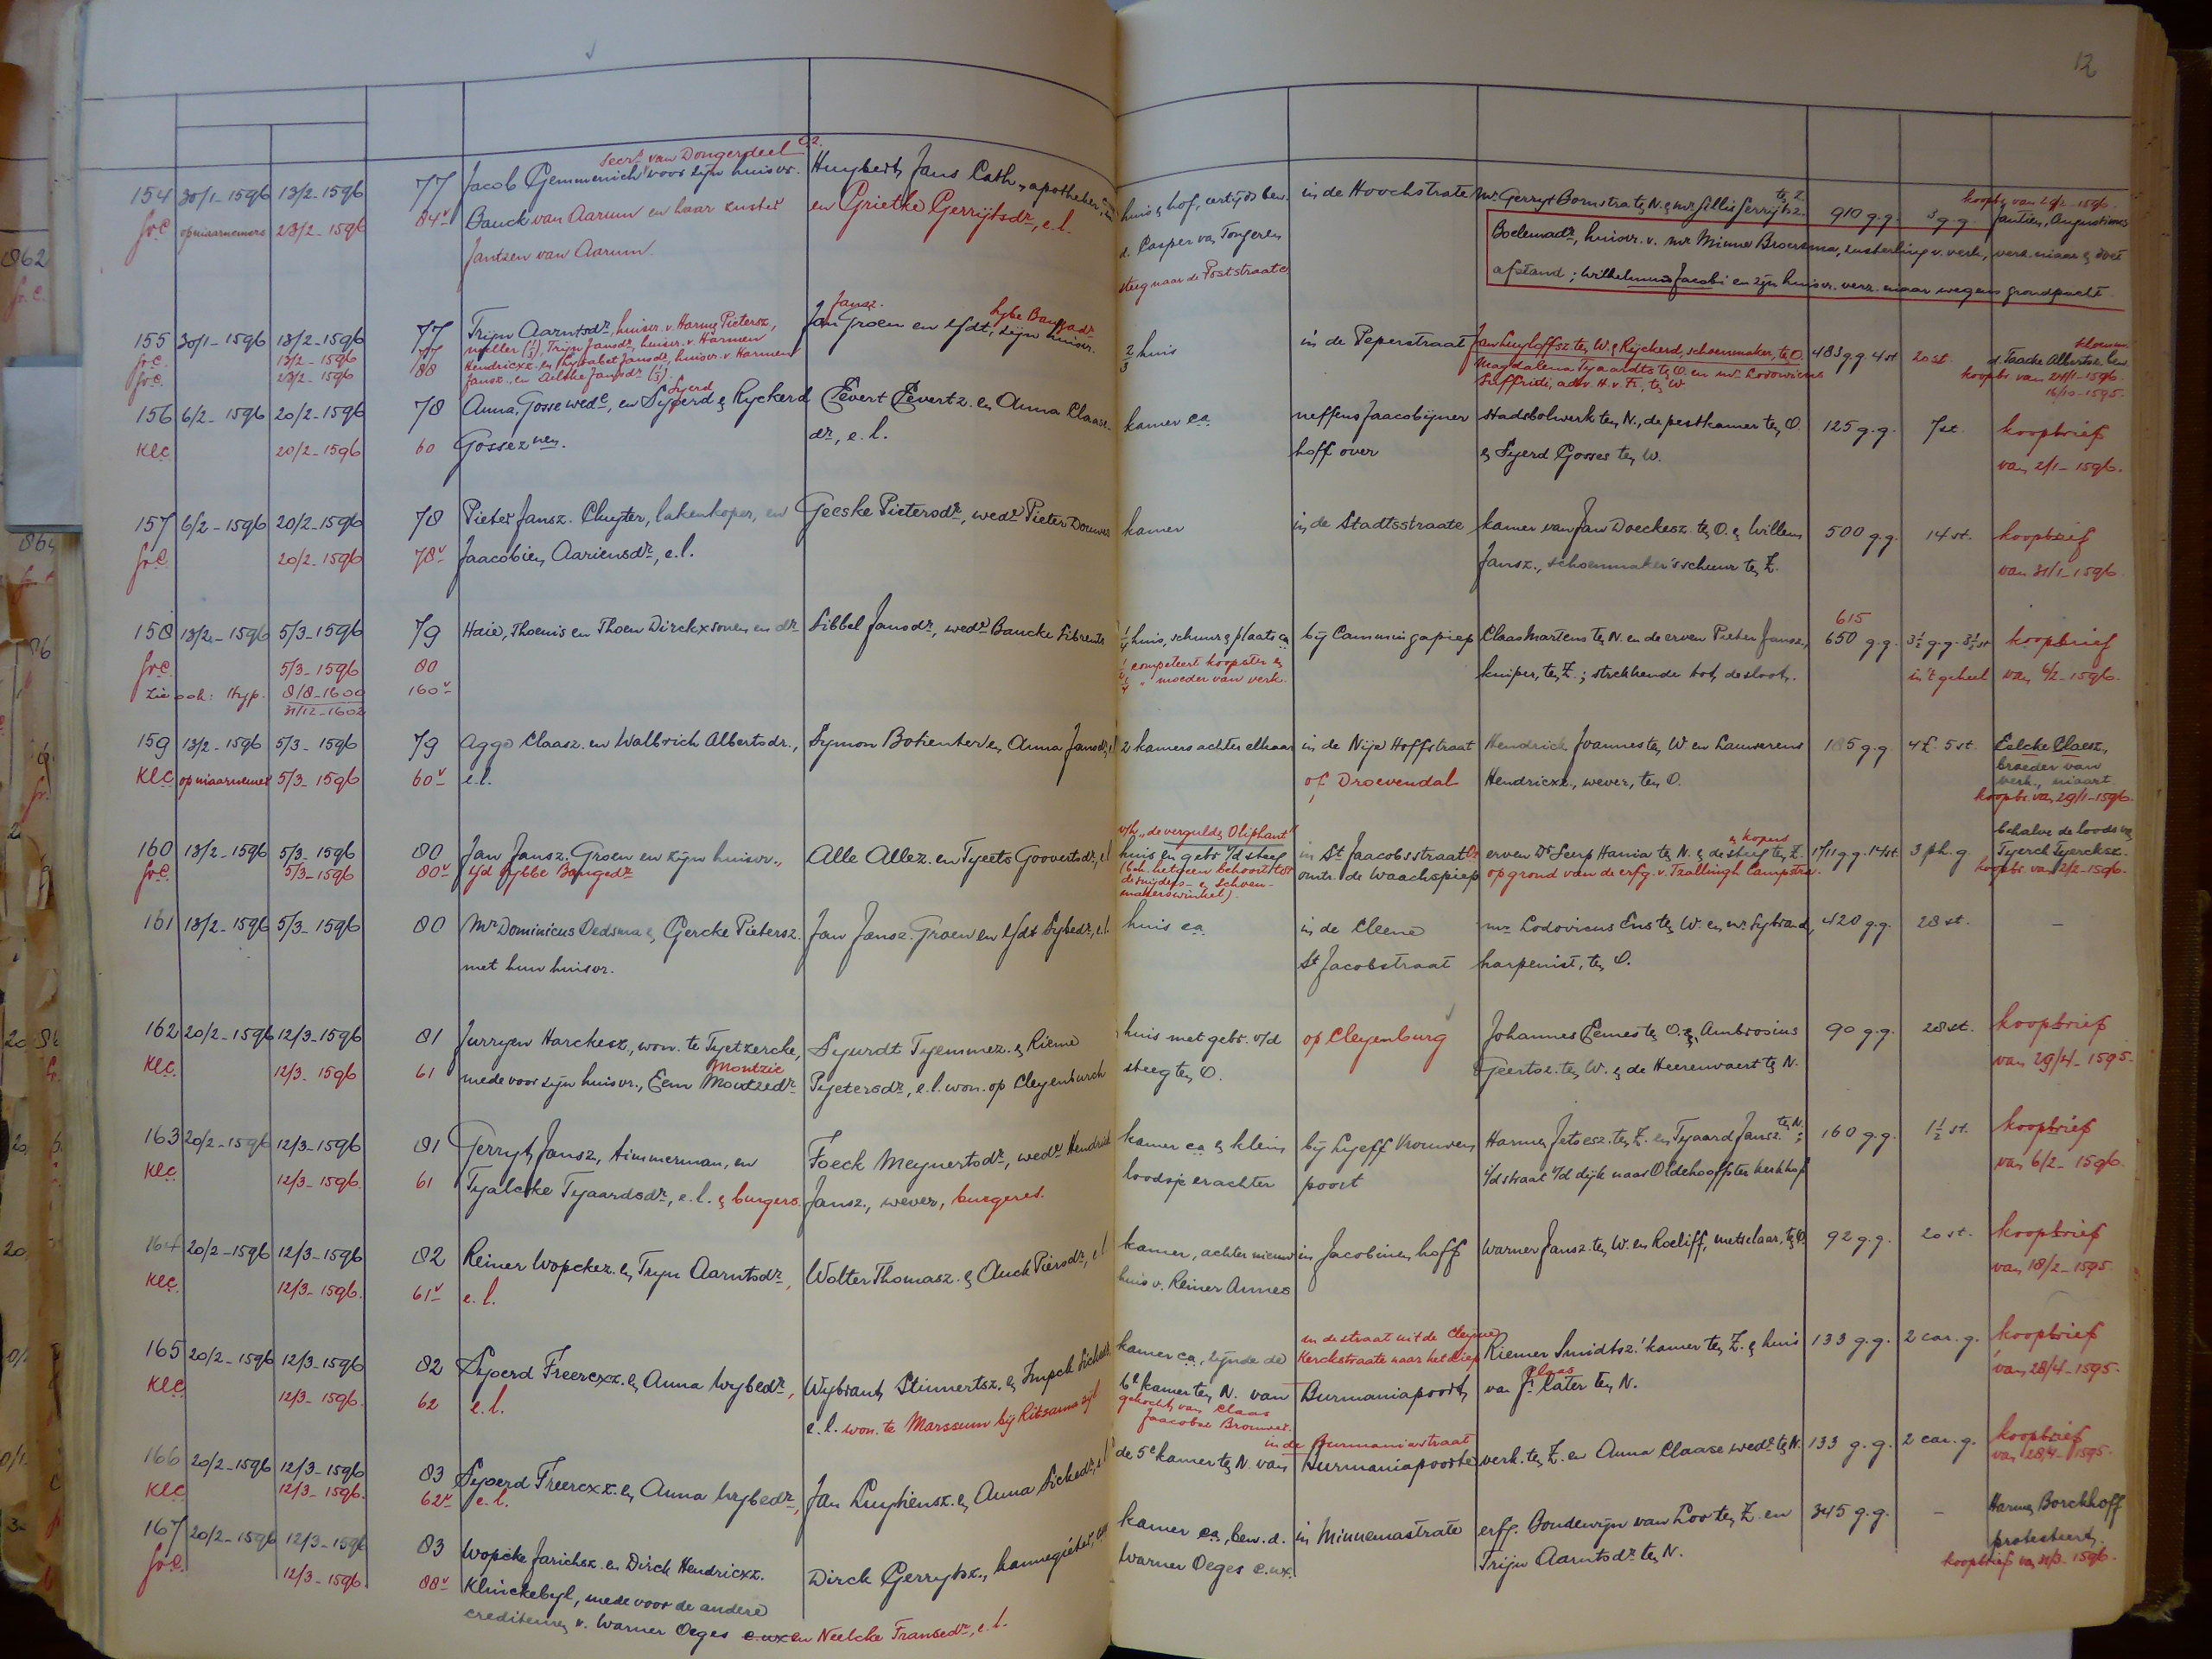 12
154 30/1-1596 13/2-1596 77 Jacob Gemmenich voor zijn huisvr. Huybert Jans Cath, apotheker, huis & hof, eertijds bew. in de Hoochstrate Mr. Gerryt Bornstra ten N. & mr Gillis Gerrytsz. ten Z. 910 g.g. 3 g.g. koopbr. van
secrt van Dongerdeel
Gr.C. opniaarnemers 23/2-1596 84v Bauck van Aarum en haar zuster en Grietke Gerrijtsdr, e.l. d. Casper van Tongeren Jantien, Augustinus
Jantzen van Aarum. steeg naar de Poststraate Boelemadr, huisvr. v. mr Minne Broersma, zusterling v. verk., verz. niaar & doet
afstand; Wilhelmus Jacobi en zijn huisvr. verz. niaar wegens grondpacht.
155 30/1-1596 13/2-1596 77 Trijn Aarntsdr, huisvr. v. Harmen Pietersz, Jan Jansz. Groen en Ifdt, zijn huisvr. 2/3 huis in de Peperstraat Jan Luyloffsz ten W. & Ryckerd, schoenmaker, ten O. 483 g.g. 4 st 20 st.
Gr.C. 13/2-1596 77 muller (1/3), Trijn Jansdr, huisvr. v. Harmen
Gr.C. 23/2-1596 88 Hendricxz. en Lysabet Jansdr, huisvr. v. Harmen Magdalena Tyaardts ten O. en mr. Lodowicus d. Taacke Albertsz. bew.
Jansz. en Aelske Jansdr (1/3). Suffridi, adv. H. v. Fr. ten W. koopbr. van 24/1-1596.
16/10-1595.
156 6/2-1596 20/2-1596 78 Anna, Gosse wede, en Syerd & Ryckerd Eevert Eevertz. en Anna Claase- kamer ca neffens Jaacobijner stadsbolwerk ten N., de pestkamer ten O. 125 g.g. 7 st. koopbrief
KlC 20/2-1596 60 Gossez nen. dr, e.l. hoff over & Syerd Gosses ten W. van 2/1-1596.
157 6/2-1596 20/2-1596 78 Pieter Jansz. Cluyter, lakenkoper, en Geeske Pietersdr, wedr Pieter Douwes kamer in de Stadtsstraate kamer van Jan Doeckesz. ten O. & Willem 500 g.g. 14 st. koopbrief
Gr.C. 20/2-1596 78v Jaacobien Aariensdr, e.l. Jansz., schoenmaker's schuur ten Z. van 31/1-1596.
158 13/2-1596 5/3-1596 79 Haie, Thoenis en Thoen Dirckx sonen en dr Sibbel Jansdr, wedr Baucke Sibrents 1/4 huis, schuur & plaats ca bij Camminga piep Claas Martens ten N. en de erven Pieter Jansz., 615 650 g.g. 3½ g.g. 3½ st koopbrief
Gr.C. 5/3-1596 80 competeert koopster & kuiper, ten Z.; strekkende tot de sloot. in 't geheel van 6/2-1596.
Zie ook: Hyp. 8/8-1600 160v moeder van verk.
31/12-1602
159 13/2-1596 5/3-1596 79 Agge Claasz. en Walbrich Albertsdr., Symon Botienter en Anna Jansdr, 2 kamers achter elkaar in de Nije Hoffstraat Hendrick Joannes ten W. en Laurerens 185 g.g. 4 £. 5 st. Eelcke Claesz,
KlC opniaarnemer 5/3-1596 60v e.l. of Droevendal Hendricxz., wever, ten O. broeder van
verk., niaart.
koopbr. van 29/1-1596.
160 13/2-1596 5/3-1596 80 Jan Jansz. Groen en zijn huisvr., Alle Allez. en Tyeets Gooverts dr, e.l. v/h „de vergulden Oliphant" in St Jaacobsstraat erven Dr Seerp Hania ten N. & de steeg ten Z. 1711 g.g. 14 st. 3 ph. g. behalve de loods van
Gr.C. 5/3-1596 80v Ifd Sybbe Baugedr huis en gebr. v/d steeg omtr. de Waachspiep op grond van de erfg. v. Tzallingh Campstra. Tyerck Tyercksz.
(beh. hetgeen behoort tot koopbr. van 2/2-1596.
de snijders- & schoen-
makerswinkel).
161 13/2-1596 5/3-1596 80 Mr Dominicus Oedsma & Gercke Pietersz. Jan Jansz. Groen en Ifdt Sybedr, e.l. huis ca in de Cleene mr Lodovicus Ens ten W. en mr Sybrand, 420 g.g. 28 st. -
met hun huisvr. St Jacobstraat harpenist, ten O.
162 20/2-1596 12/3-1596 81 Jurryen Harckesz., won. te Tyetzercke, Syurdt Tyemmez. & Rieme huis met gebr. v/d op Cleyenburg Johannes Eemes ten O. & Ambrosius 90 g.g. 28 st. koopbrief
KlC. 12/3-1596 61 mede voor zijn huisvr., Eem Montzedr Montzie Pyetersdr, e.l. won. op Cleyenburch steeg ten O. Geertsz. ten W. & de Heerenvaert ten N. van 29/4-1595.
163 20/2-1596 12/3-1596 81 Gerryt Jansz, timmerman, en Foeck Meynertsdr, wedr Hendrick kamer ca & klein bij Lyeff Vrouwen Harmen Jetsesz. ten Z. en Tyaard Jansz. ten N.; 160 g.g. 1½ st. koopbrief
KlC 12/3-1596. 61 Tyalcke Tyaardsdr, e.l. & burgers. Jansz., wever, burgeres. loodsje erachter poort i/d straat v/d dijk naar Oldehooffster kerkhof van 6/2-1596.
164 20/2-1596 12/3-1596 82 Reiner Wopckez. en Tryn Aarntsdr, Wolter Thomasz. & Auck Piersdr, e.l. kamer, achter nieuw in Jacobinen hoff Warner Jansz. ten W. en Roeliff, metselaar, ten O. 92 g.g. 20 st. koopbrief
KlC. 12/3-1596. 61v e.l. huis v. Reiner Annes van 18/2-1595.
165 20/2-1596 12/3-1596 82 Syoerd Freercxz. & Anna Wybedr, Wybrant Stinnertsz. & Impck Sickedr, kamer ca, zijnde de in de straat uit de Cleyne Kerckstraate naar het diep Riemer Smidtsz! kamer ten Z. & huis 133 g.g. 2 car. g. koopbrief
KlC. 12/3-1596. 62 e.l. e.l. won. te Marssum bij Ritsuma zijl 6e kamer ten N. van Burmaniapoort van Claas Cater ten N. van 28/4-1595.
gekocht van Claas
Jaacobsz Brouwer.
166 20/2-1596 12/3-1596 83 Syoerd Freercxz. & Anna Wybedr, Jan Luytiensz. & Anna Sickedr, e.l. de 5e kamer ten N. van in de Burmaniastraat Burmaniapoorte verk. ten Z. en Anna Claase wedr ten N. 133 g.g. 2 car. g. koopbrief
KlC 12/3-1596. 62v e.l. van 28/4-1595.
167 20/2-1596 12/3-1596 83 Wopcke Jarichsz. en Dirck Hendricxz. Dirck Gerrytsz., kannegieter, kamer ca, bew. d. in Minnemastrate erfg. Boudewijn van Loo ten Z. en 345 g.g. - Harmen Borckhoff
Gr.C. 12/3-1596. 88v Klinckebyl, mede voor de andere Warner Oeges e.ux. Trijn Aarntsdr ten N. protesteert.
crediteuren v. Warner Oeges e.ux en Neelcke Fransedr, e.l. koopbrief van